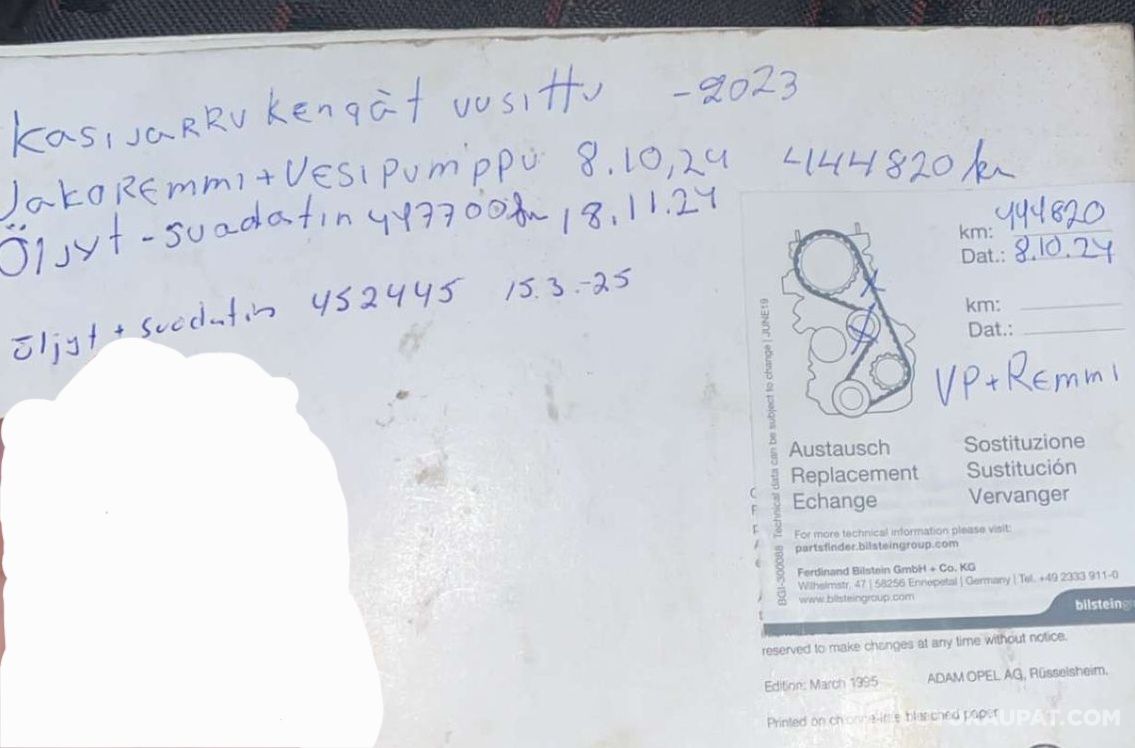 KASIJARRU KENGÄT UUSITTU - 2023
JAKOREMMI + VESIPUMPPU 8.10,24 444820 km
ÖLJYT - SUODATIN 447700 km 18.11.24
öljyt + suodatin 452445 15.3.-25
km: 444820
Dat.: 8.10.24
km:
Dat.:
VP + REMMI
Austausch
Replacement
Echange
Sostituzione
Sustitución
Vervanger
BGI-300088 Technical data can be subject to change | JUNE19
For more technical information please visit:
partsfinder.bilsteingroup.com
Ferdinand Bilstein GmbH + Co. KG
Wilhelmstr. 47 | 58256 Ennepetal | Germany | Tel. +49 2333 911-0
www.bilsteingroup.com
bilstein
reserved to make changes at any time without notice.
Edition: March 1995 ADAM OPEL AG, Rüsselsheim.
Printed on chlorine-free bleached paper